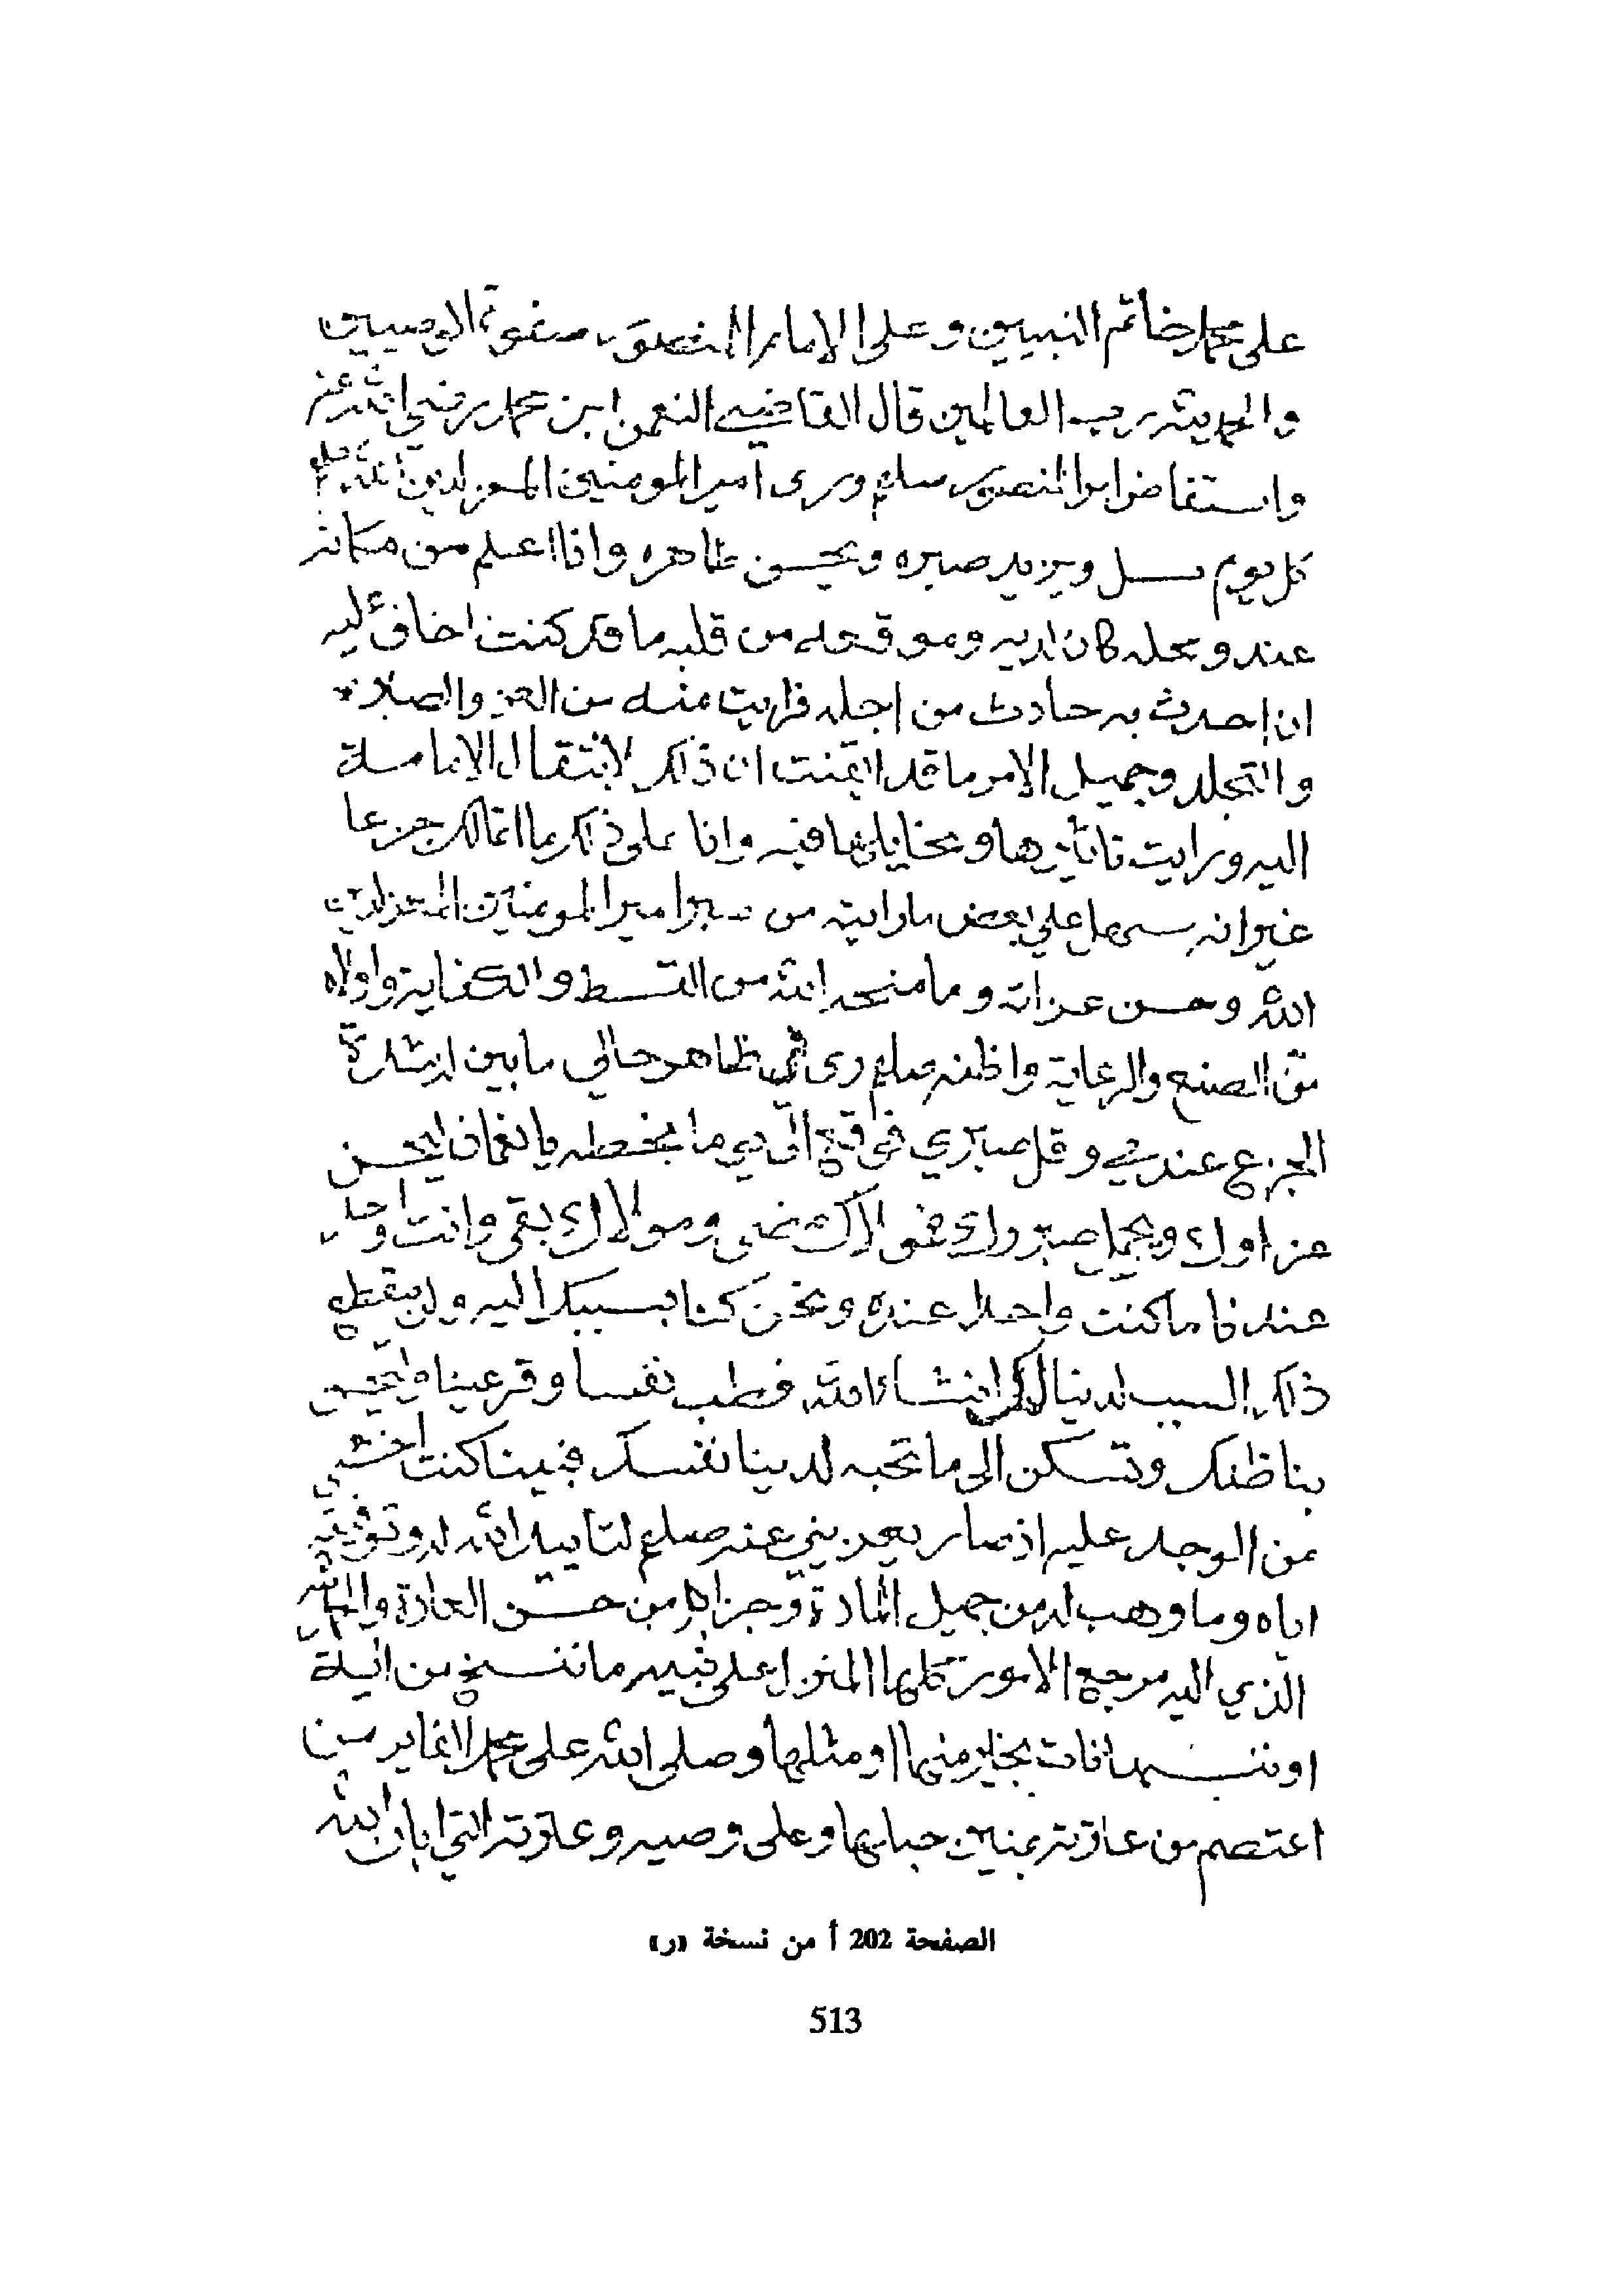 على محمد خاتم النبيين وعلى الامام المنصور صفوة الوصيين
والحمد لله رب العالمين قال القاضي النعمن ابن محمد رضي الله عنه
واستفاض امر المنصور صلع ورى امير المومنين المعز لدين الله صلع
كل يوم يسل ويزيد صبره ويحسن ظاهره وانا اعلم من مكانه
عنده ومحله كان لديه وموقعه من قلبه ما قد كنت اخاف عليه
ان احدث به حادث من اجله فرايت منه من العز والصلابة
والتجلد وجميل الامر ما قد ايقنت ان ذلك لانتقال الامامة
اليه ورايت تاثيرها ومخايلها فيه وانا على ذلك ما اتمالك جزعا
غير انه سهل علي بعض ما رايته من صبر امير المومنين المعز لدين
الله وحسن عزائه وما منحه الله من القسط والكفاية واولاه
من الصنع والرعاية واظنه صلع رى في ظاهر حالي ما بين له شدة
الجزع عندي وقل صبري فوقع الي يوما بخطه يا نعمان ليحسن
عزاوك ويجمل صبرك فمولاك مضى ومولاك بقى وانت واحد
عنده كما كنت واحدا عنده ونحن كنا بسببك اليه ولن ينقطع
ذلك السبب لدينا لك انشاء الله فطب نفسا وقر عينا وليحسن
بنا ظنك وتسكن الى ما تحبه لدينا نفسك فبينا كنت اخشى
من الوجد عليه اذ صار يعزيني عنه صلع لتاييد الله له وتوفيقه
اياه وما وهب له من جميل المادة وجزاه من حسن العادة والحمد لله
الذي اليه مرجع الامور كلها المنزل على نبيه ما ننسخ من اية
او ننسها نات بخير منها او مثلها وصلى الله على محمد الفايز من
اعتصم من عترته بمتين حبلها وعلى وصيه وعترته التي ابان الله
الصفحة 202 أ من نسخة «ر»
513